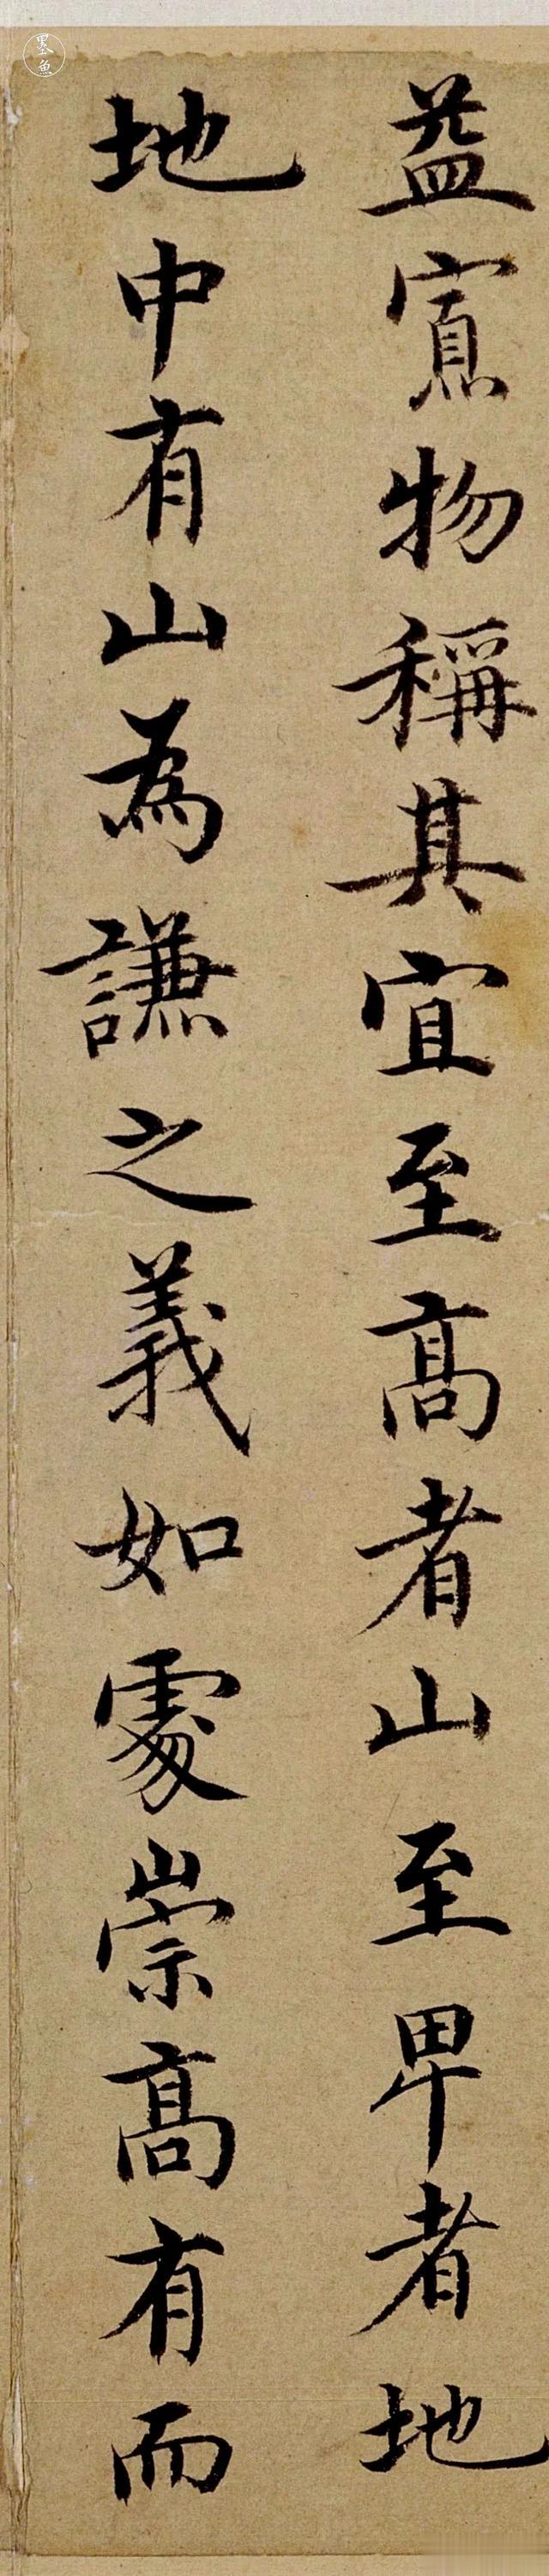 益寡物稱其宜至高者山至卑者地
地中有山為謙之義如處崇高有而
墨魚